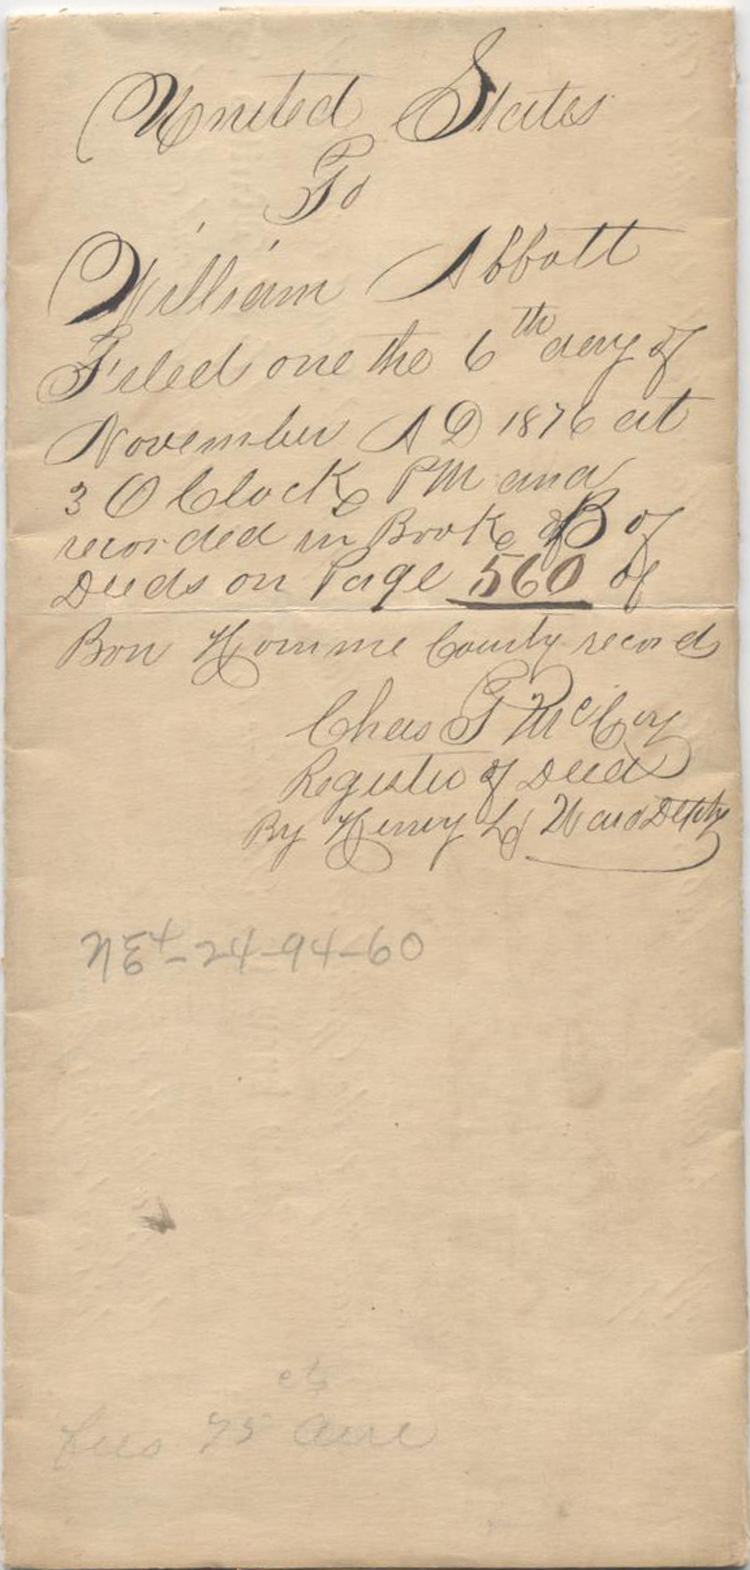 United States
To
William Abbott
Filed one the 6th day of
November A D 1876 at
3 O Clock PM and
recorded in Book B of
Deeds on Page 560 of
Bon Homme County records
Chas T McCoy
Register of Deeds
By Henry Ward Deputy
NE4-24-94-60
cts
Fees 75